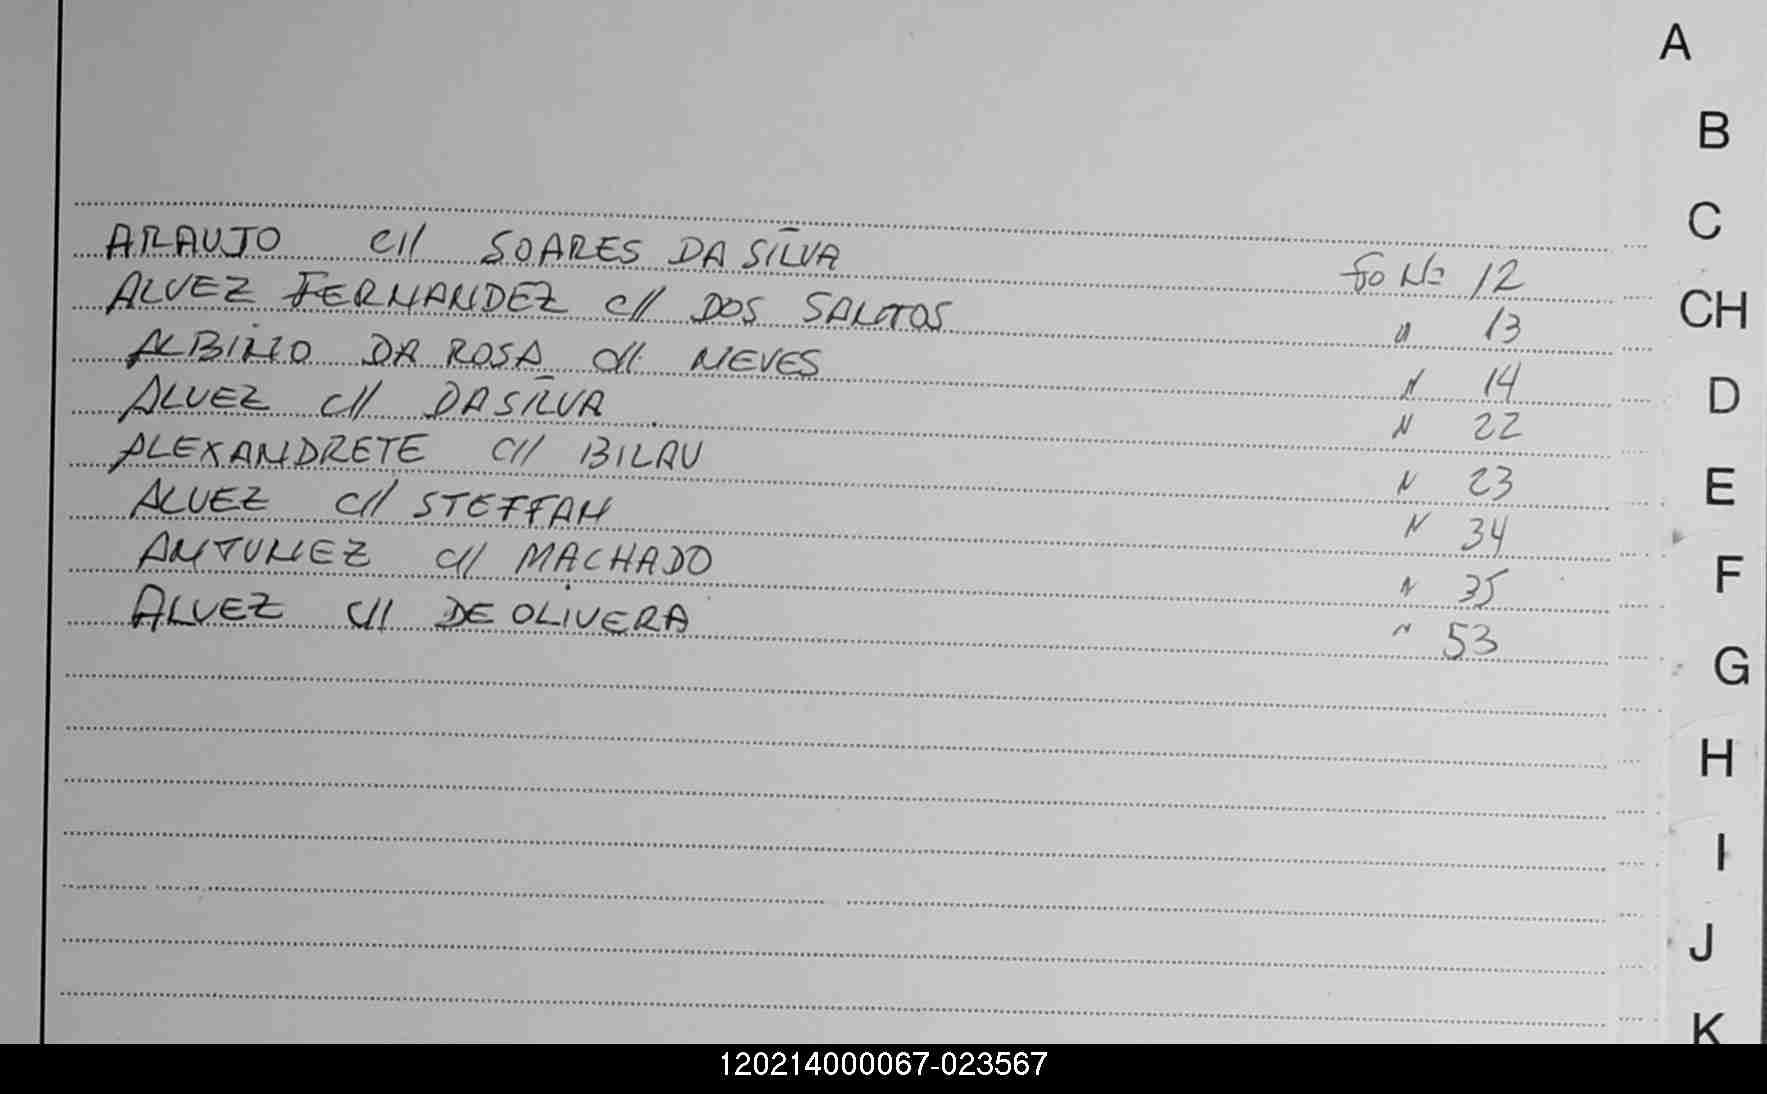 A
B
C
ARAUJO c// SOARES DA SILVA fo Nº 12
CH
ALVEZ FERNANDEZ c// DOS SANTOS " 13
ALBINO DA ROSA c// NEVES " 14
D
ALVEZ c// DA SILVA " 22
ALEXANDRETE c// BILAU " 23
E
ALVEZ c// STEFFAN " 34
ANTUNEZ c// MACHADO " 35
F
ALVEZ c// DE OLIVERA " 53
G
H
I
J
K
120214000067-023567